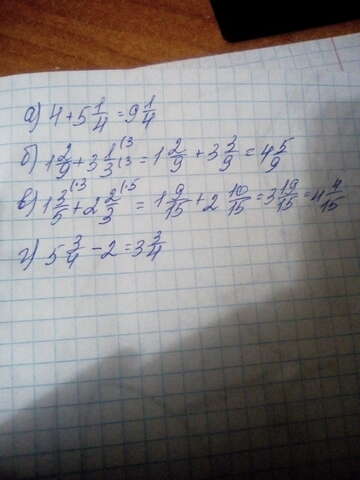 а) 4 + 5 1/4 = 9 1/4
б) 1 2/9 + 3 1/3 (·3 (·3 = 1 2/9 + 3 3/9 = 4 5/9
в) 1 3/5 (·3 + 2 2/3 (·5 = 1 9/15 + 2 10/15 = 3 19/15 = 4 4/15
г) 5 3/4 - 2 = 3 3/4